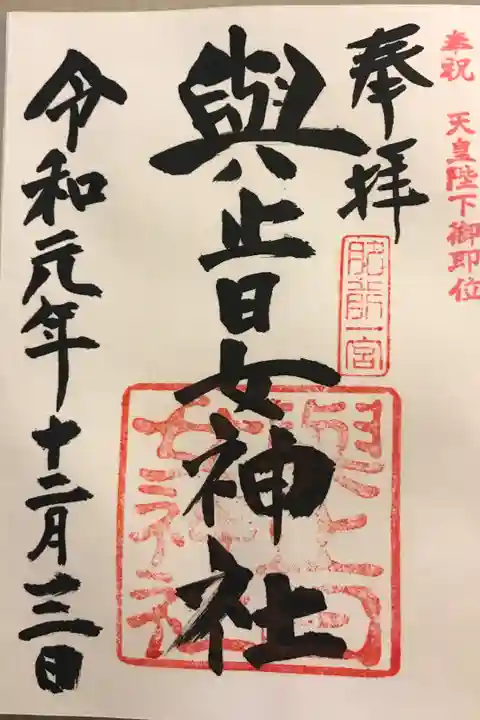 奉祝 天皇陛下御即位
奉拝
肥前一宮
與止日女神社
與止日女神社
令和元年十二月三日